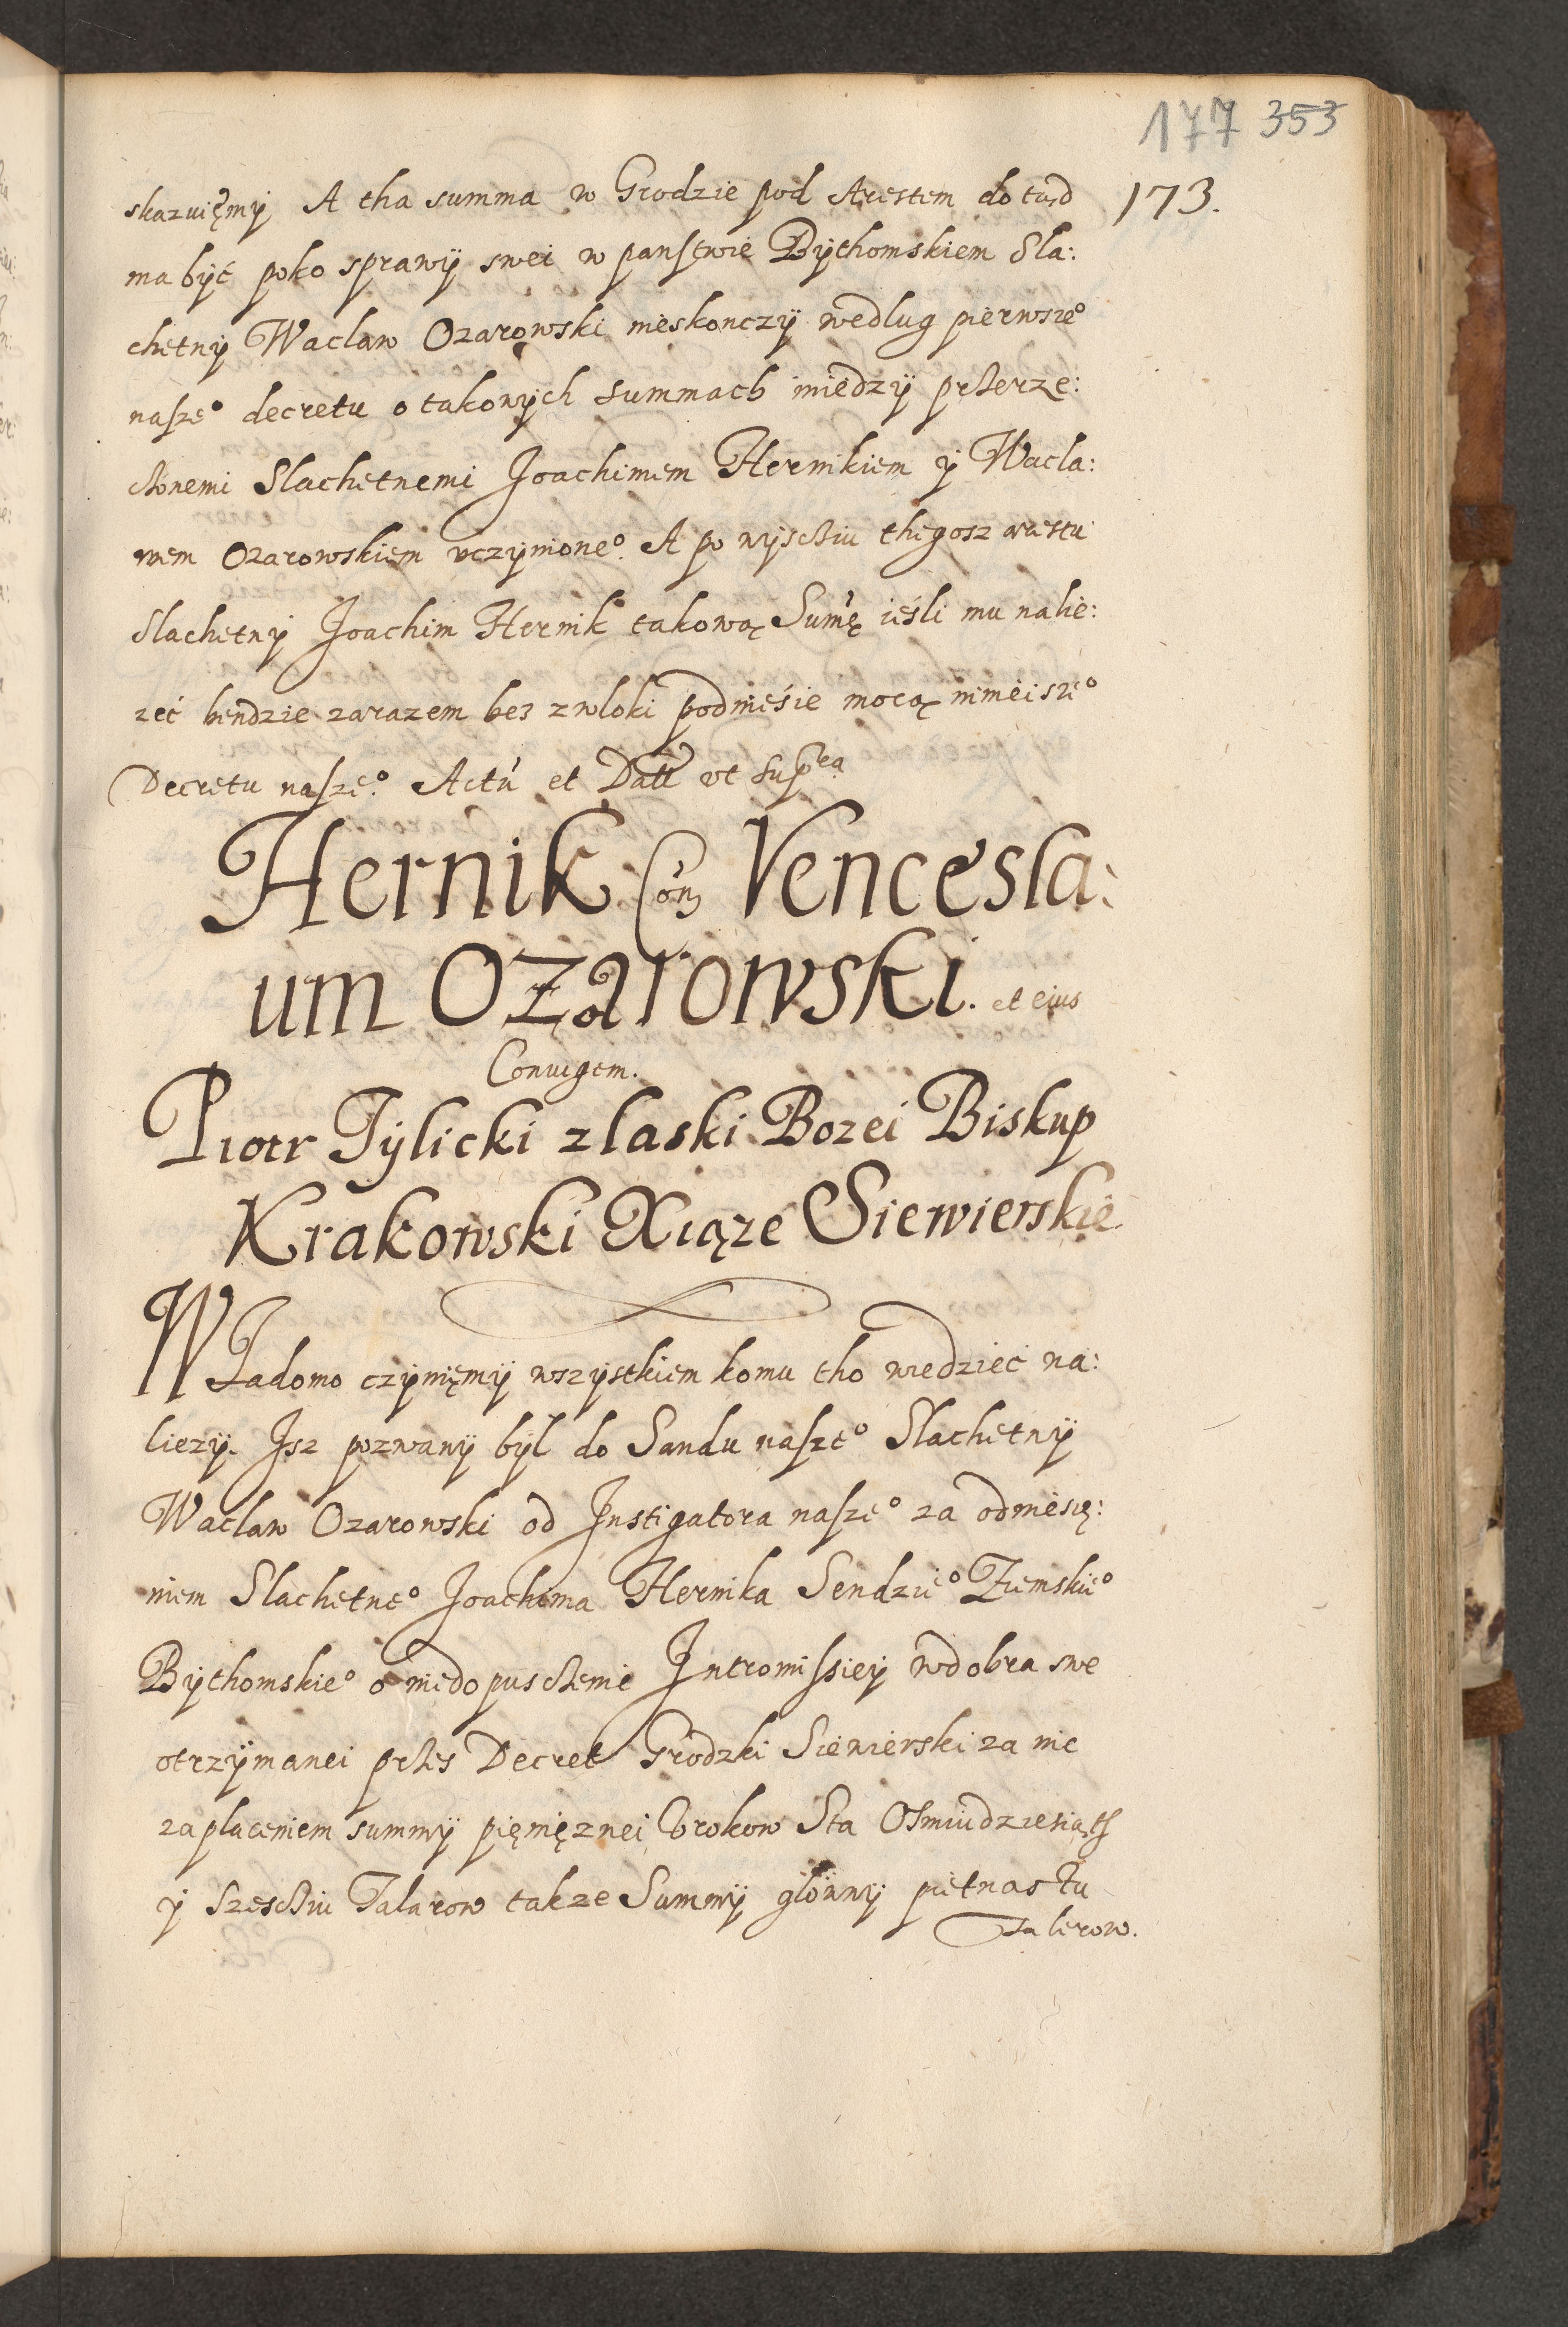 177 353
173.
skazuięmÿ A tha summa w Grodzie pod Arestem do tąd
ma bÿć poko sprawÿ swei w panstwie Bÿthomskiem Sla:
chetnÿ Waclaw Ozarowski nieskonczÿ wedlug pierwsze°
nasze° decretu o takowÿch summach miedzÿ przerze:
czonemi Slachetnemi Joachimem Hernikiem ÿ Wacla:
wem Ozarowskiem vczÿnione°. A po wÿsciu thegosz arestu
Slachetnÿ Joachim Hernik takową Sum̃ę ieśli mu nalie:
zeć bendzie zarazem bez zwloki podnieśie mocą ninieisze°
Decretu nasze°. Actũ et Datt vt supra
Hernik Con Vencesla:
um Ozarowski. et eius
Coniugem.
Piotr Tÿlicki z laski Bozei Biskup
Krakowski Xiąze Siewierskie.
WIadomo czÿnięmÿ wszÿstkiem komu tho wiedziec na:
liezÿ. Jsz pozwanÿ bÿl do Sandu nasze° Slachetnÿ
Waclaw Ozarowski od Jnstigatora nasze° za odniesię:
niem Slachetne° Joachima Hernika Sendzie° Ziemskie°
Bÿthomskie° o niedopusczenie Jntromissieÿ w dobra swe
otrzÿmanei przes Decret Grodzki Siewierski za nie
zaplaceniem summÿ pięnięznei Wrokow Sta Osmiudziesiąth
ÿ Szesciu Talarow takze Summÿ glównÿ pietnastu
Talerow.